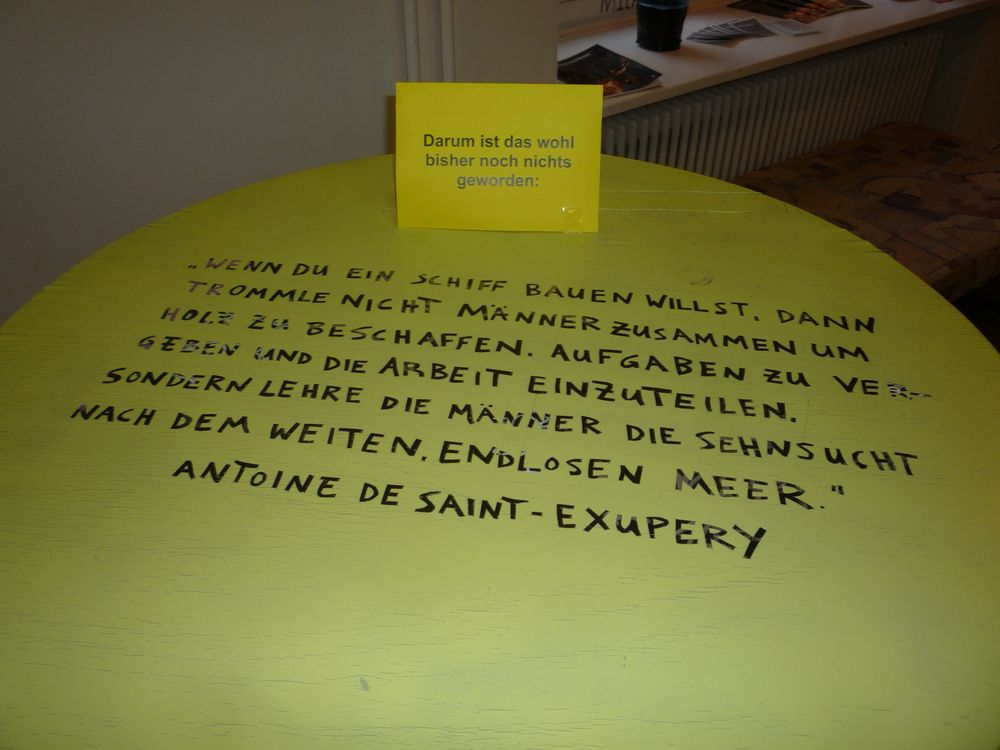 Darum ist das wohl
bisher noch nichts
geworden:
„WENN DU EIN SCHIFF BAUEN WILLST, DANN
TROMMLE NICHT MÄNNER ZUSAMMEN UM
HOLZ ZU BESCHAFFEN, AUFGABEN ZU VER-
GEBEN UND DIE ARBEIT EINZUTEILEN,
SONDERN LEHRE DIE MÄNNER DIE SEHNSUCHT
NACH DEM WEITEN, ENDLOSEN MEER."
ANTOINE DE SAINT-EXUPERY